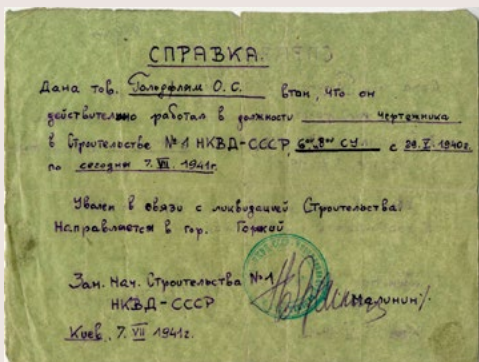 СПРАВКА.
Дана тов. О. С. в том, что он
действительно работал в должности чертежника
в Строительстве №1 НКВД-СССР, СУ. с 29. V. 1940г.
по сегодня 7. VII. 1941г.
Уволен в связи с ликвидацией Строительства.
Направляется в гор. Горький
Зам. Нач. Строительства №1
НКВД-СССР /Малинин/.
Киев, 7. VII 1941г.